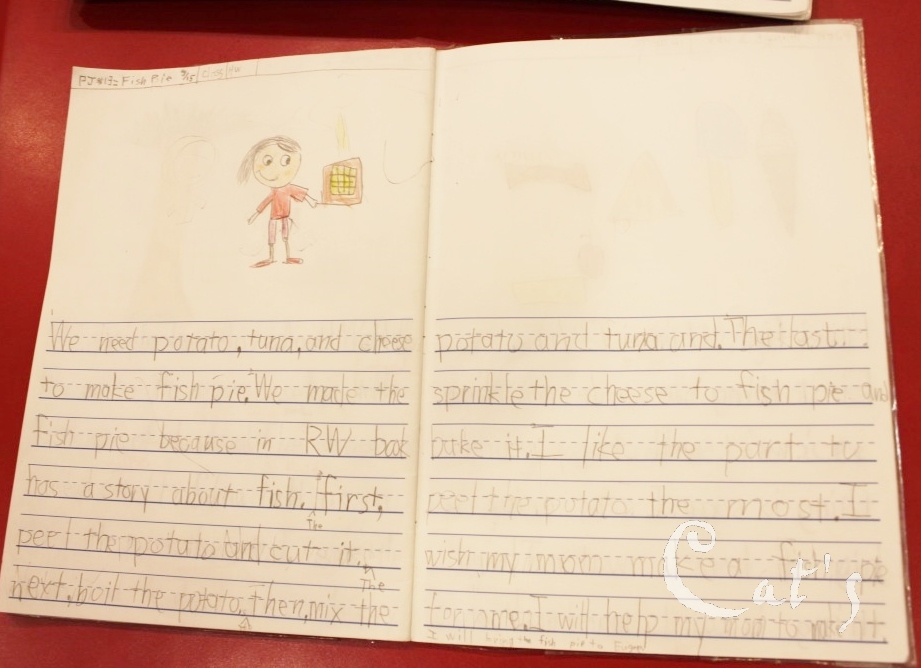 Fish Pie
We need potato, tuna, and cheese
to make fish pie. We made the
fish pie because in RW book
has a story about fish. first,
The
peel the potato and cut it.
The
next, boil the potato. Then, mix the
potato and tuna and. The last
sprinkle the cheese to fish pie and
bake it. I like the part to
peel the potato the most. I
wish my mom make a fish pie
for me. I will help my mom to make it.
I will bring the fish pie to
Cat's